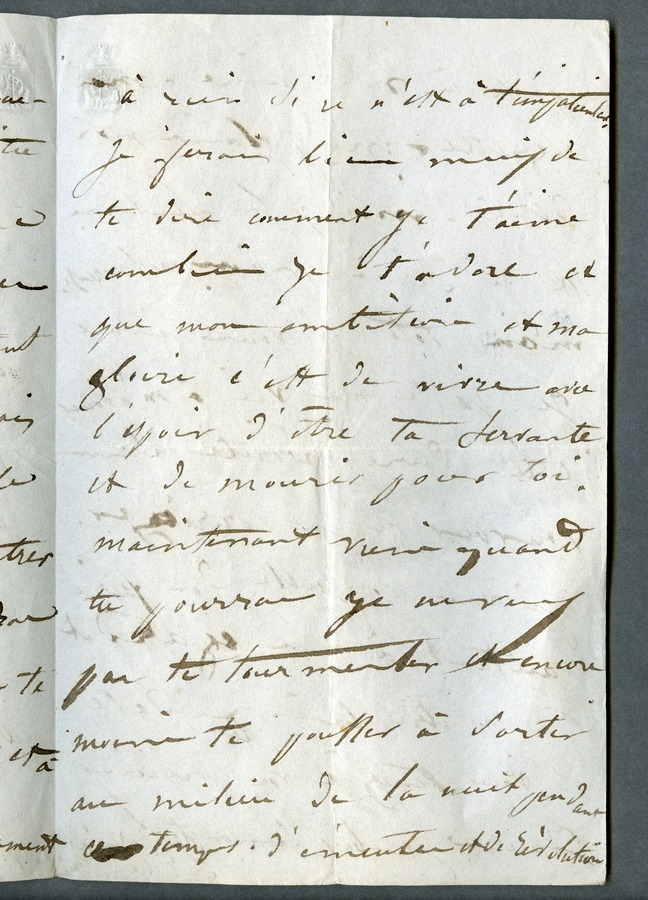 à rien dire n'est à t'impatienter.
Je ferais bien mieux de
te dire comment je t'aime
combien je t'adore et
que mon ambition et ma
gloire c'est de vivre avec
l'espoir d'être ta servante
et de mourir pour toi.
maintenant viens quand
tu pourras je ne veux
pas te tourmenter et encore
moins te pousser à sortir
au milieu de la nuit pendant
ce temps d'émeutes et de Révolution